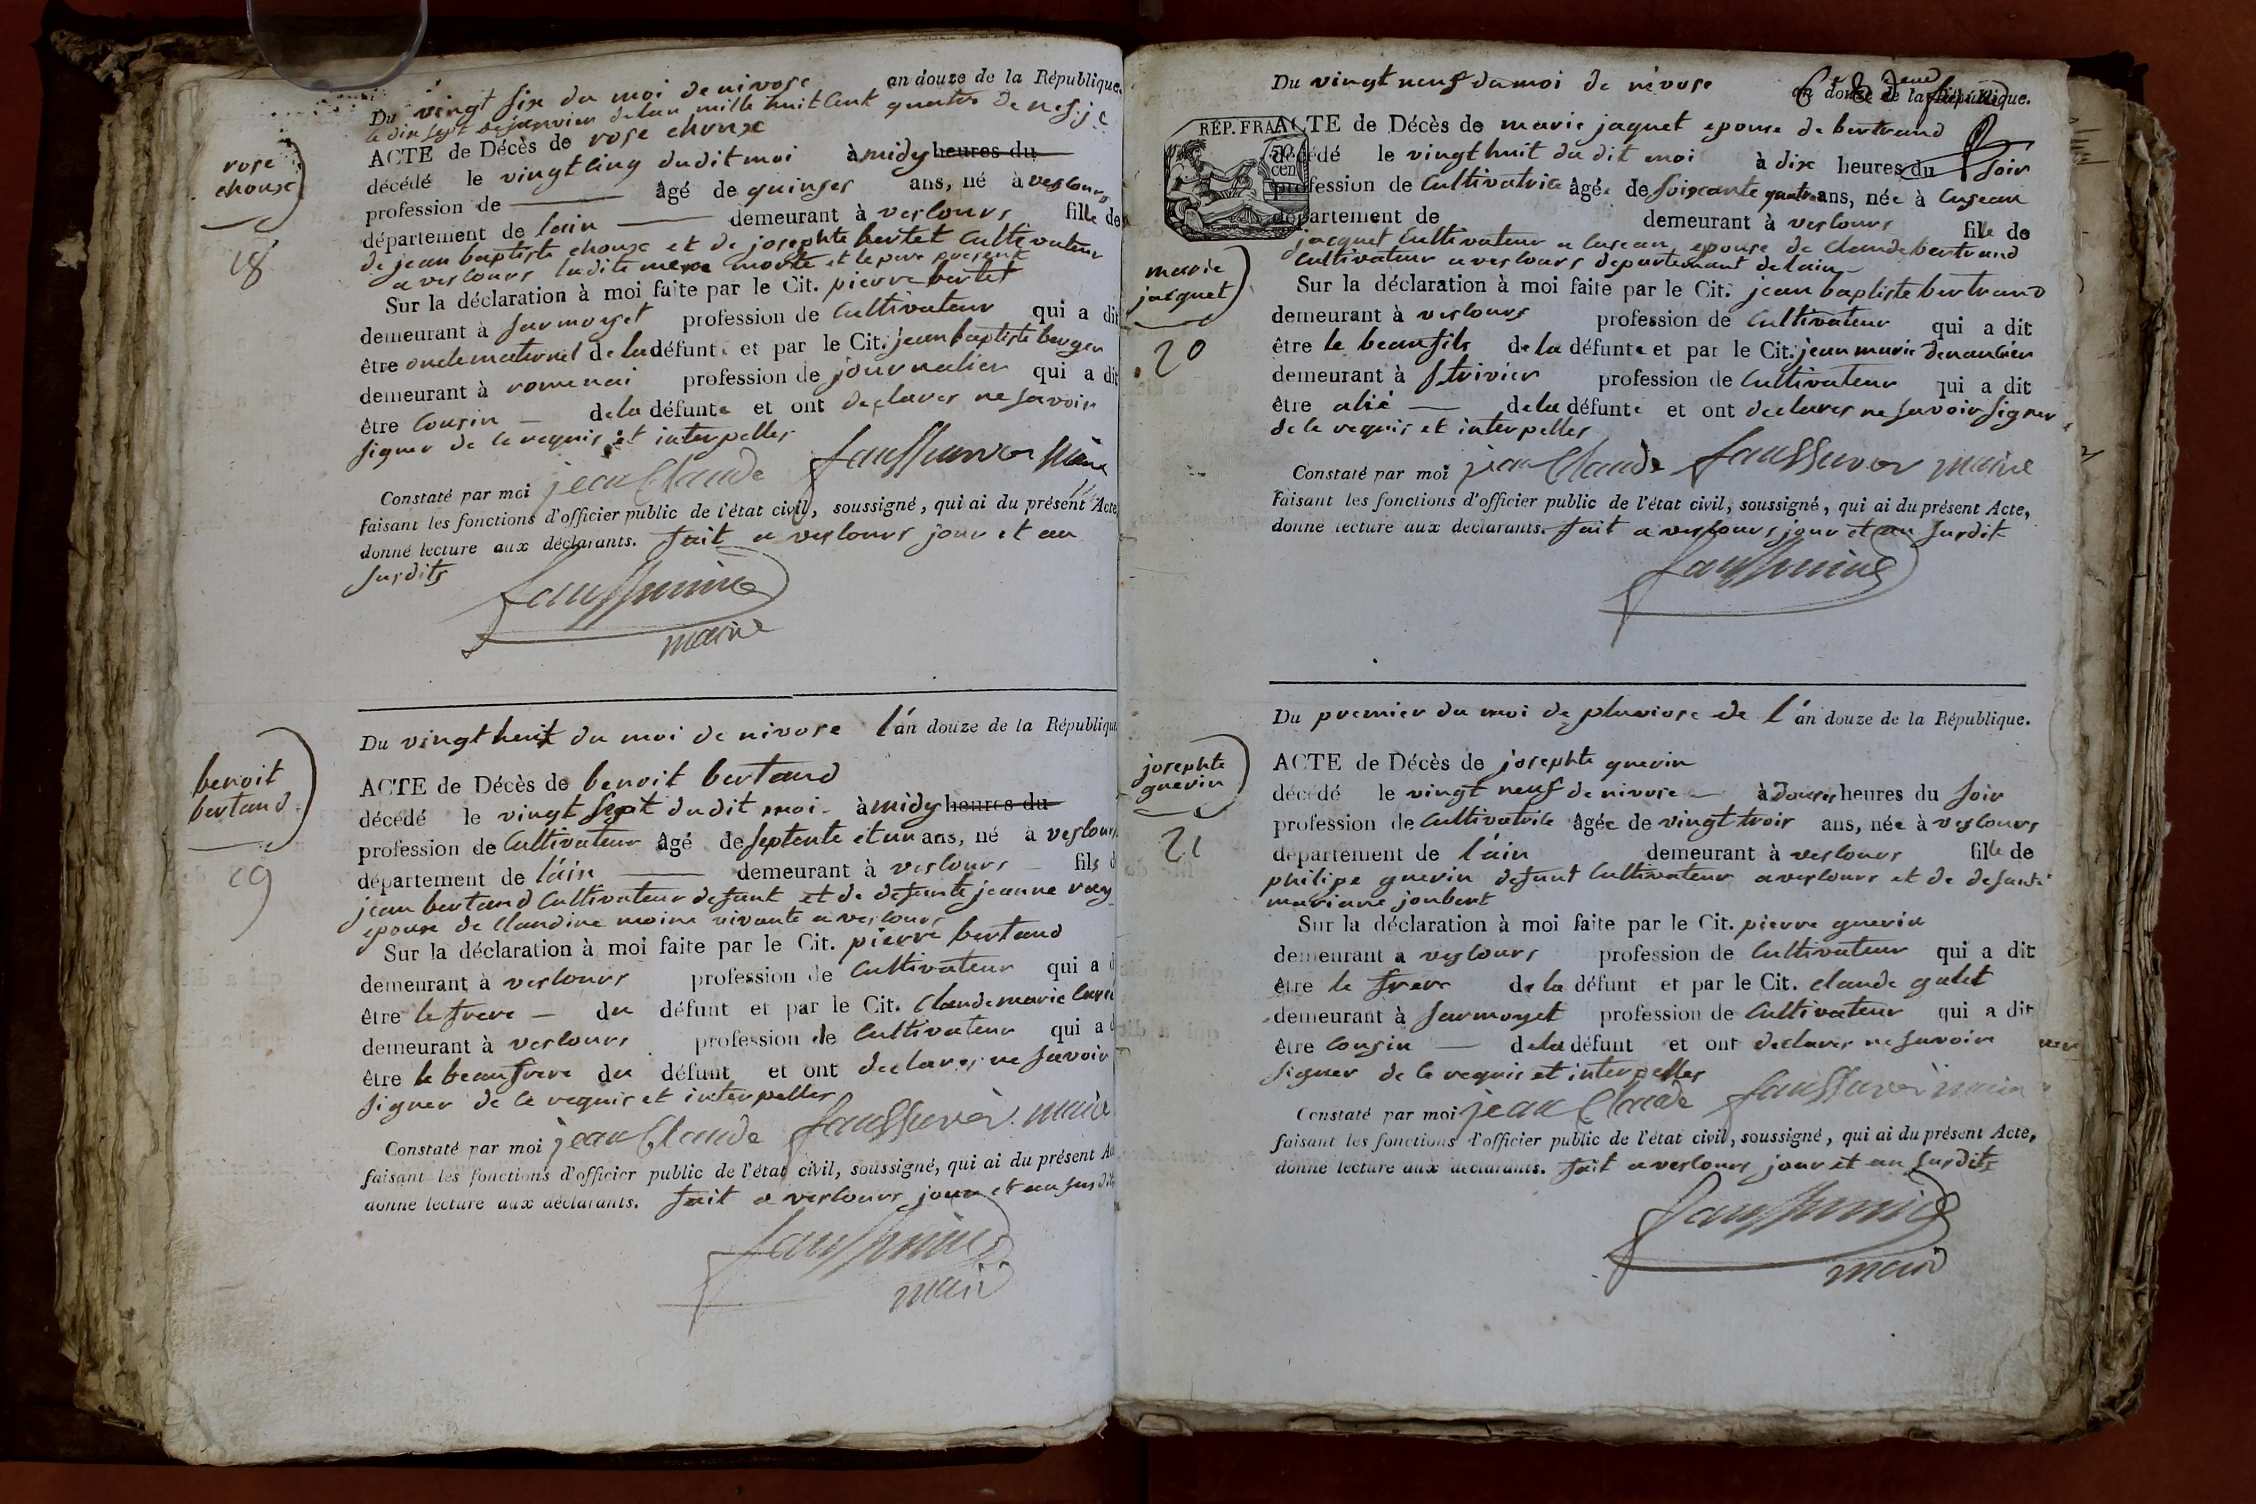 Du vingt six du moi de nivose an douze de la République
le dix sept de janvier de lan mille huit cent quatre de
ACTE de Décès de rose choux
décédé le vingt cinq dudit moi à midy heures du
profession de âgé de quinses ans, né à veslours
département de lain demeurant à veslours fille de
de jean baptiste choux et de josephte bertet Cultivateur
a veslours ladite mere morte et le pere present
Sur la déclaration à moi faite par le Cit. pierre bertet
demeurant à sarmoyet profession de Cultivateur qui a dit
être oncle maternel de la défunte et par le Cit. jean baptiste berger
demeurant à romenai profession de journalier qui a dit
être Cousin de la défunte et ont declares ne savoir
signer de ce requis et interpelles
Constaté par moi jean Claude maire
faisant les fonctions d'officier public de l'état civil, soussigné, qui ai du présent Acte
donné lecture aux déclarants. fait a veslours jour et an
susdits
maire
rose
choux
18
Du vingt huit du moi de nivose l'an douze de la République
ACTE de Décès de benoit bertand
décédé le vingt sept dudit moi à midy heures du
profession de Cultivateur âgé de septente et un ans, né à veslours
département de l'ain demeurant à veslours fils d
jean bertand Cultivateur defunt et de defunte jeanne ray
epoux de Claudine moine vivante a veslours
Sur la déclaration à moi faite par le Cit. pierre bertand
demeurant à veslours profession de Cultivateur qui a d
être le frere du défunt et par le Cit. Claude marie
demeurant à veslours profession de Cultivateur qui a d
être le beaufrere du défunt et ont declares ne savoir
signer de ce requis et interpelles
Constaté par moi jean Claude maire
faisant les fonctions d'officier public de l'état civil, soussigné, qui ai du présent Ac
donné lecture aux déclarants. fait a veslours jour et an susdits
maire
benoit
bertand
19
Du vingt neuf du moi de nivose an douze de la République.
RÉP. FRA
50
cen
ACTE de Décès de marie jaquet epouse de bertrand
décédé le vingt huit du dit moi à dix heures du soir
profession de Cultivatrice âgée de soixante quatre ans, née à Cuseau
département de demeurant à veslours fille de
jacquet Cultivateur a Cuseau epouse de Claude bertrand
Cultivateur a veslours departemant de lain
Sur la déclaration à moi faite par le Cit. jean baptiste bertrand
demeurant à veslours profession de Cultivateur qui a dit
être le beaufils de la défunte et par le Cit. jean marie
demeurant à st trivier profession de Cultivateur qui a dit
être alié de la défunte et ont declares ne savoir signer
de ce requis et interpelles
Constaté par moi jean Claude maire
faisant les fonctions d'officier public de l'état civil, soussigné, qui ai du présent Acte,
donné lecture aux déclarants. fait a veslours jour et an susdit
marie
jacquet
20
Du premier du moi de pluviose de l'an douze de la République.
ACTE de Décès de josephte guerin
décédé le vingt neuf de nivose à douses heures du soir
profession de Cultivatrice âgée de vingt trois ans, née à veslours
département de l'ain demeurant à veslours fille de
philipe guerin defunt Cultivateur a veslours et de defunte
mariane joubert
Sur la déclaration à moi faite par le Cit. pierre guerin
demeurant a veslours profession de Cultivateur qui a dit
être le frere de la défunt et par le Cit. claude galet
demeurant à sarmoyet profession de Cultivateur qui a dit
être Cousin de la défunt et ont declares ne savoir
signer de ce requis et interpelles
Constaté par moi jean Claude maire
faisant les fonctions d'officier public de l'état civil, soussigné, qui ai du présent Acte,
donné lecture aux déclarants. fait a veslours jour et an susdits
maire
josephte
guerin
21